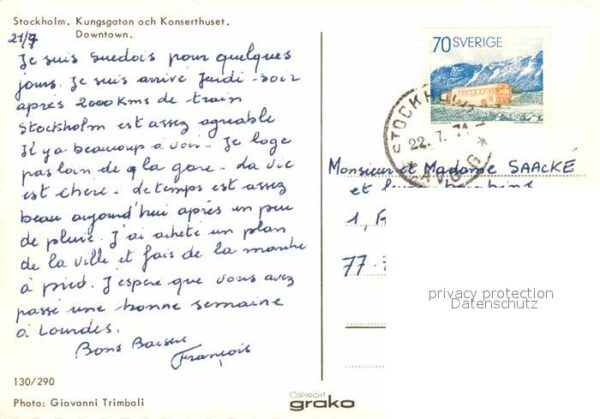 Stockholm. Kungsgatan och Konserthuset.
Downtown.
21/7
Je suis Suedois pour quelques
jours. Je suis arrivé Jeudi-soir
après 2000 Kms de train
Stockholm est assez agréable
Il y a beaucoup a voir. Je loge
pas loin de la gare. La vie
est chère. Le temps est assez
beau aujourd'hui après un peu
de pluie. J'ai acheté un plan
de la ville et fais de la marche
à pied. J'espère que vous avez
passé une bonne semaine
à Lourdes.
Bons Baisers
François
130/290
Photo: Giovanni Trimboli
COPYRIGHT
grako
70 SVERIGE
STOCKHOLM
22.7.74
AVG
Monsieur et Madame SAACKÉ
et
1,
77
privacy protection
Datenschutz